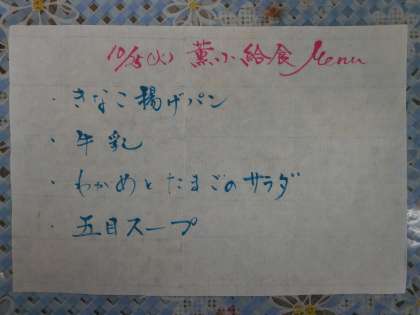 10/25(火) 薫小給食Menu
・きなこ揚げパン
・牛乳
・わかめとたまごのサラダ
・五目スープ